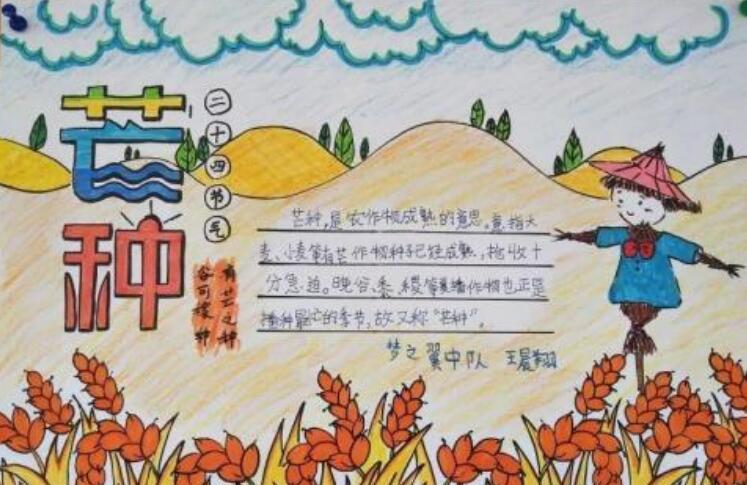 芒种
二十四节气
有芒之种
谷可稼种
芒种，是农作物成熟的意思。意指大
麦、小麦等有芒作物种子已经成熟，抢收十
分急迫。晚谷、黍、稷等夏播作物也正是
播种最忙的季节，故又称“芒种”。
梦之翼中队 王晨翔